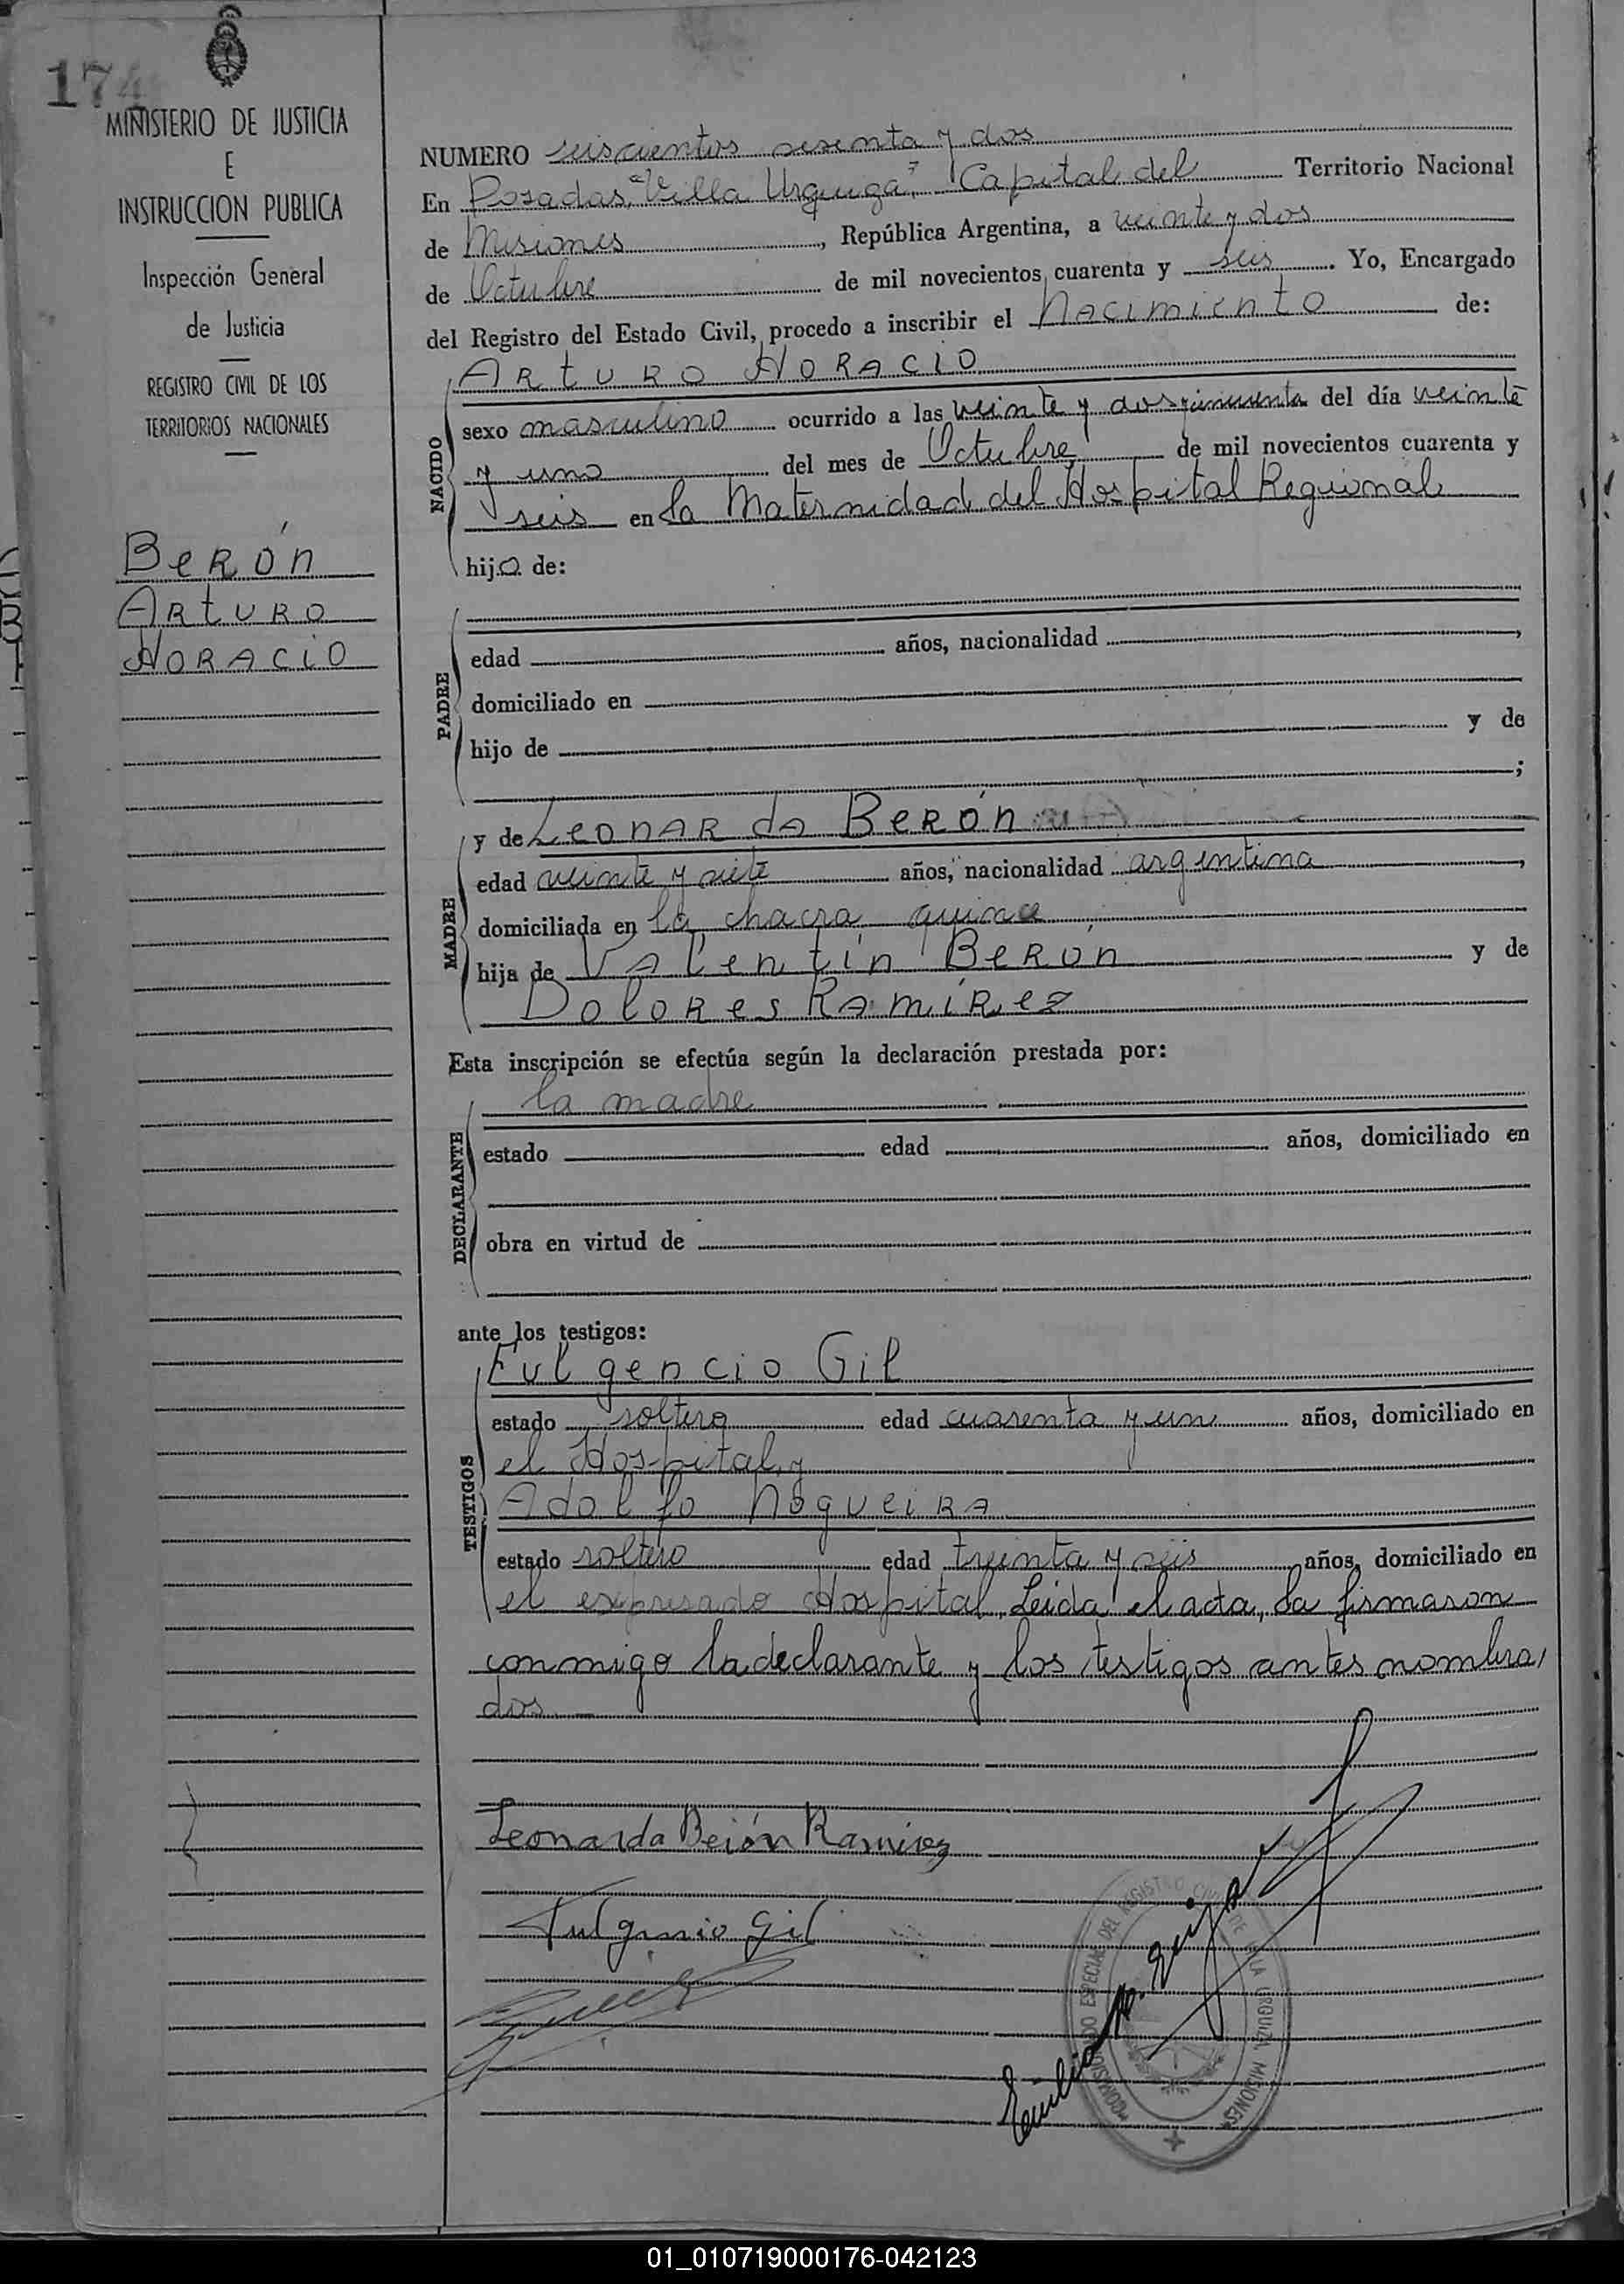 174
MINISTERIO DE JUSTICIA
E
INSTRUCCION PUBLICA
Inspección General
de Justicia
REGISTRO CIVIL DE LOS
TERRITORIOS NACIONALES
Berón
Arturo
Horacio
NUMERO seiscientos sesenta y dos
En Posadas, "Villa Urquiza", Capital del Territorio Nacional
de Misiones, República Argentina, a veinte y dos
de Octubre de mil novecientos cuarenta y seis. Yo, Encargado
del Registro del Estado Civil, procedo a inscribir el Nacimiento de:
Arturo Horacio
NACIDO
sexo masculino ocurrido a las veinte y dos y cincuenta del día veinte
y uno del mes de Octubre de mil novecientos cuarenta y
seis en la Maternidad del Hospital Regional
hijo de:
PADRE
edad años, nacionalidad ,
domiciliado en
hijo de y de
;
MADRE
y de Leonarda Berón
edad veinte y siete años, nacionalidad argentina,
domiciliada en la chacra quince
hija de Valentín Berón y de
Dolores Ramírez
Esta inscripción se efectúa según la declaración prestada por:
DECLARANTE
la madre
estado edad años, domiciliado en
obra en virtud de
ante los testigos:
TESTIGOS
Fulgencio Gil
estado soltero edad cuarenta y un años, domiciliado en
el Hospital, y
Adolfo Nogueira
estado soltero edad treinta y seis años, domiciliado en
el expresado Hospital. Leida el acta, la firmaron
conmigo la declarante y los testigos antes nombra
dos.—
Leonarda Berón Ramirez
Fulgencio Gil
Emilio
COMISIONADO ESPECIAL DEL REGISTRO CIVIL DE VILLA URQUIZA, MISIONES
01_010719000176-042123